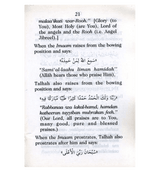 21
malaa'ikati war-Rooh." [Glory (to
You), Most Holy (are You), Lord of
the angels and the Rooh (i.e. Angel
Jibreel).]
When the Imaam raises from the bowing
position and says:
سَمِعَ اللهُ لِمَنْ حَمِدَهُ
"Sami'al-laahu liman hamidah"
(Allâh hears those who praise Him),
Talhah also raises from the bowing
position and says:
رَبَّنَا وَلَكَ الْحَمْدُ حَمْدًا كَثِيرًا طَيِّبًا مُبَارَكًا فِيهِ
"Rabbanaa wa lakal-hamd, hamdan
katheeran tayyiban mubarakan feeh."
(Our Lord, all praises are to You,
many good, pure and blessed
praises.)
When the Imaam prostrates, Talhah also
prostrates after him and says:
سُبْحَانَ رَبِّيَ الأَعْلَى